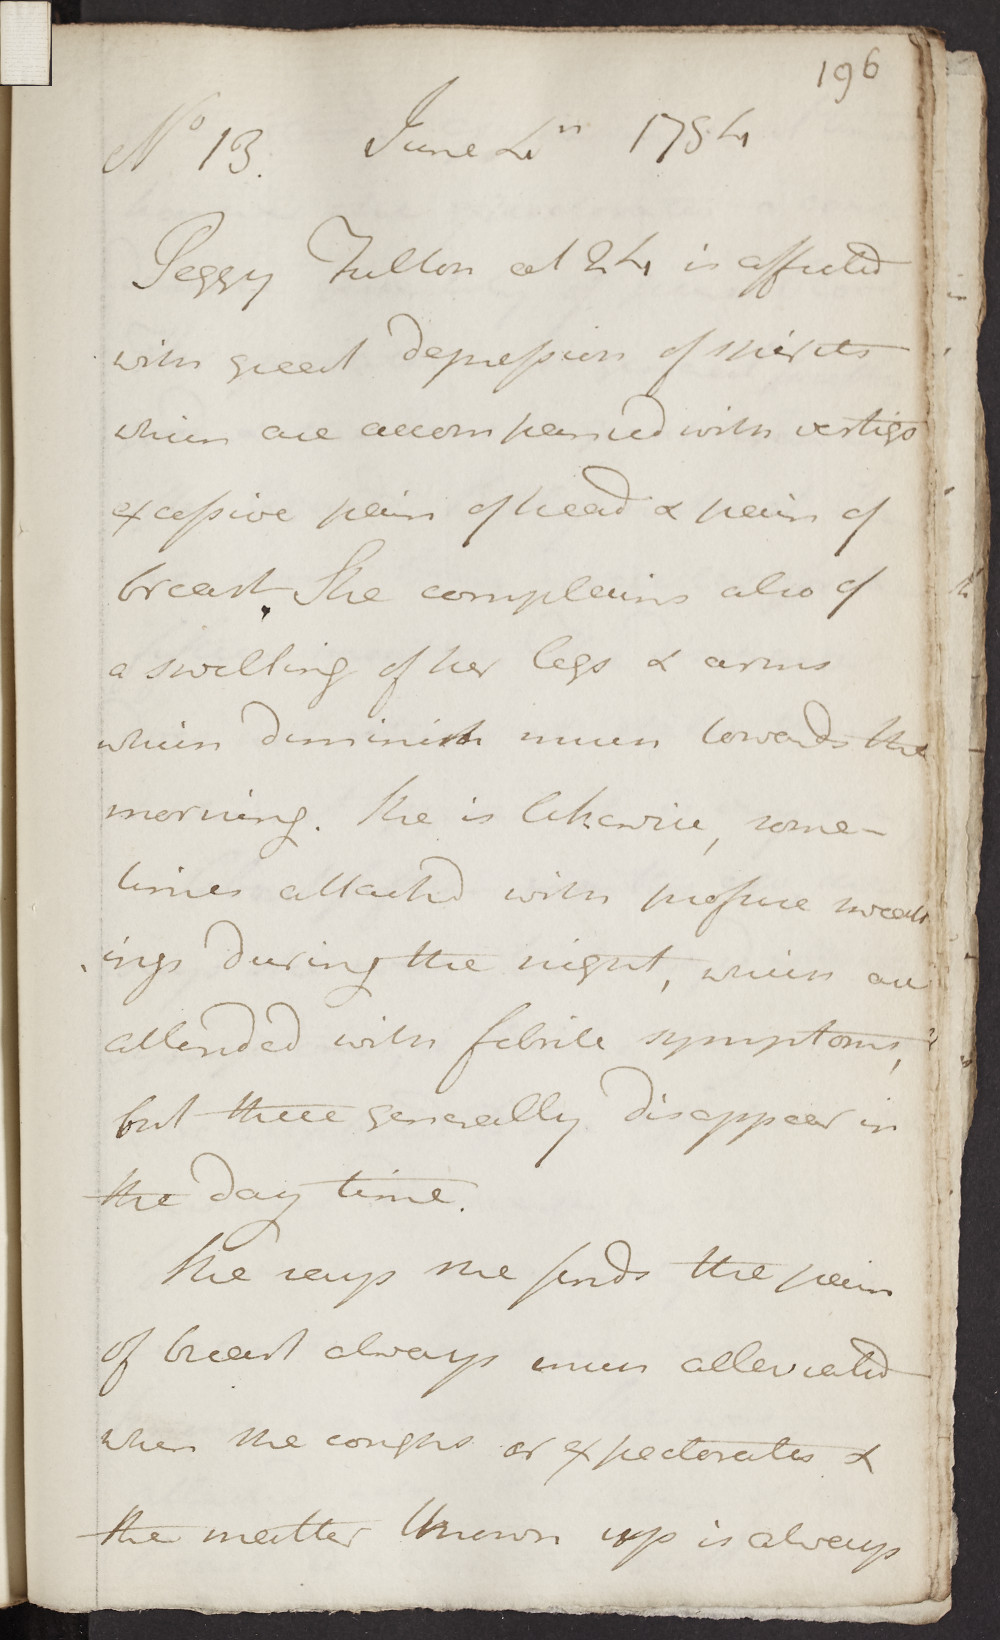 196
No 13. June 4th 1784
Peggy Fulton aet 24 is affected
with great depression of spirits
which are accompanied with vertigo
excessive pain of head & pain of
breast. She complains also of
a swelling of her legs & arms
which diminish much towards the
morning. She is likewise, some-
times attackd with profuse sweat
ings during the night, which are
attended with febrile symptoms,
but these generally disappear in
the day time.
She says she finds the pain
of breast always much alleviated
when she coughs or expectorates &
the matter thrown up is always